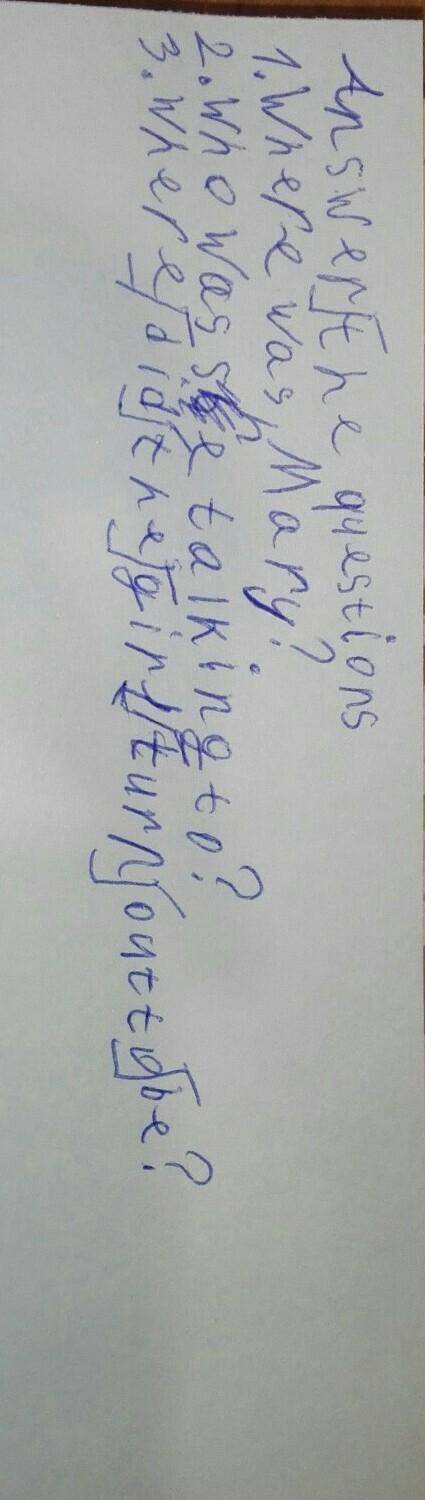 Answer the questions
1. Where was Mary?
2. Who was she talking to?
3. Where did the girl turn out to be?